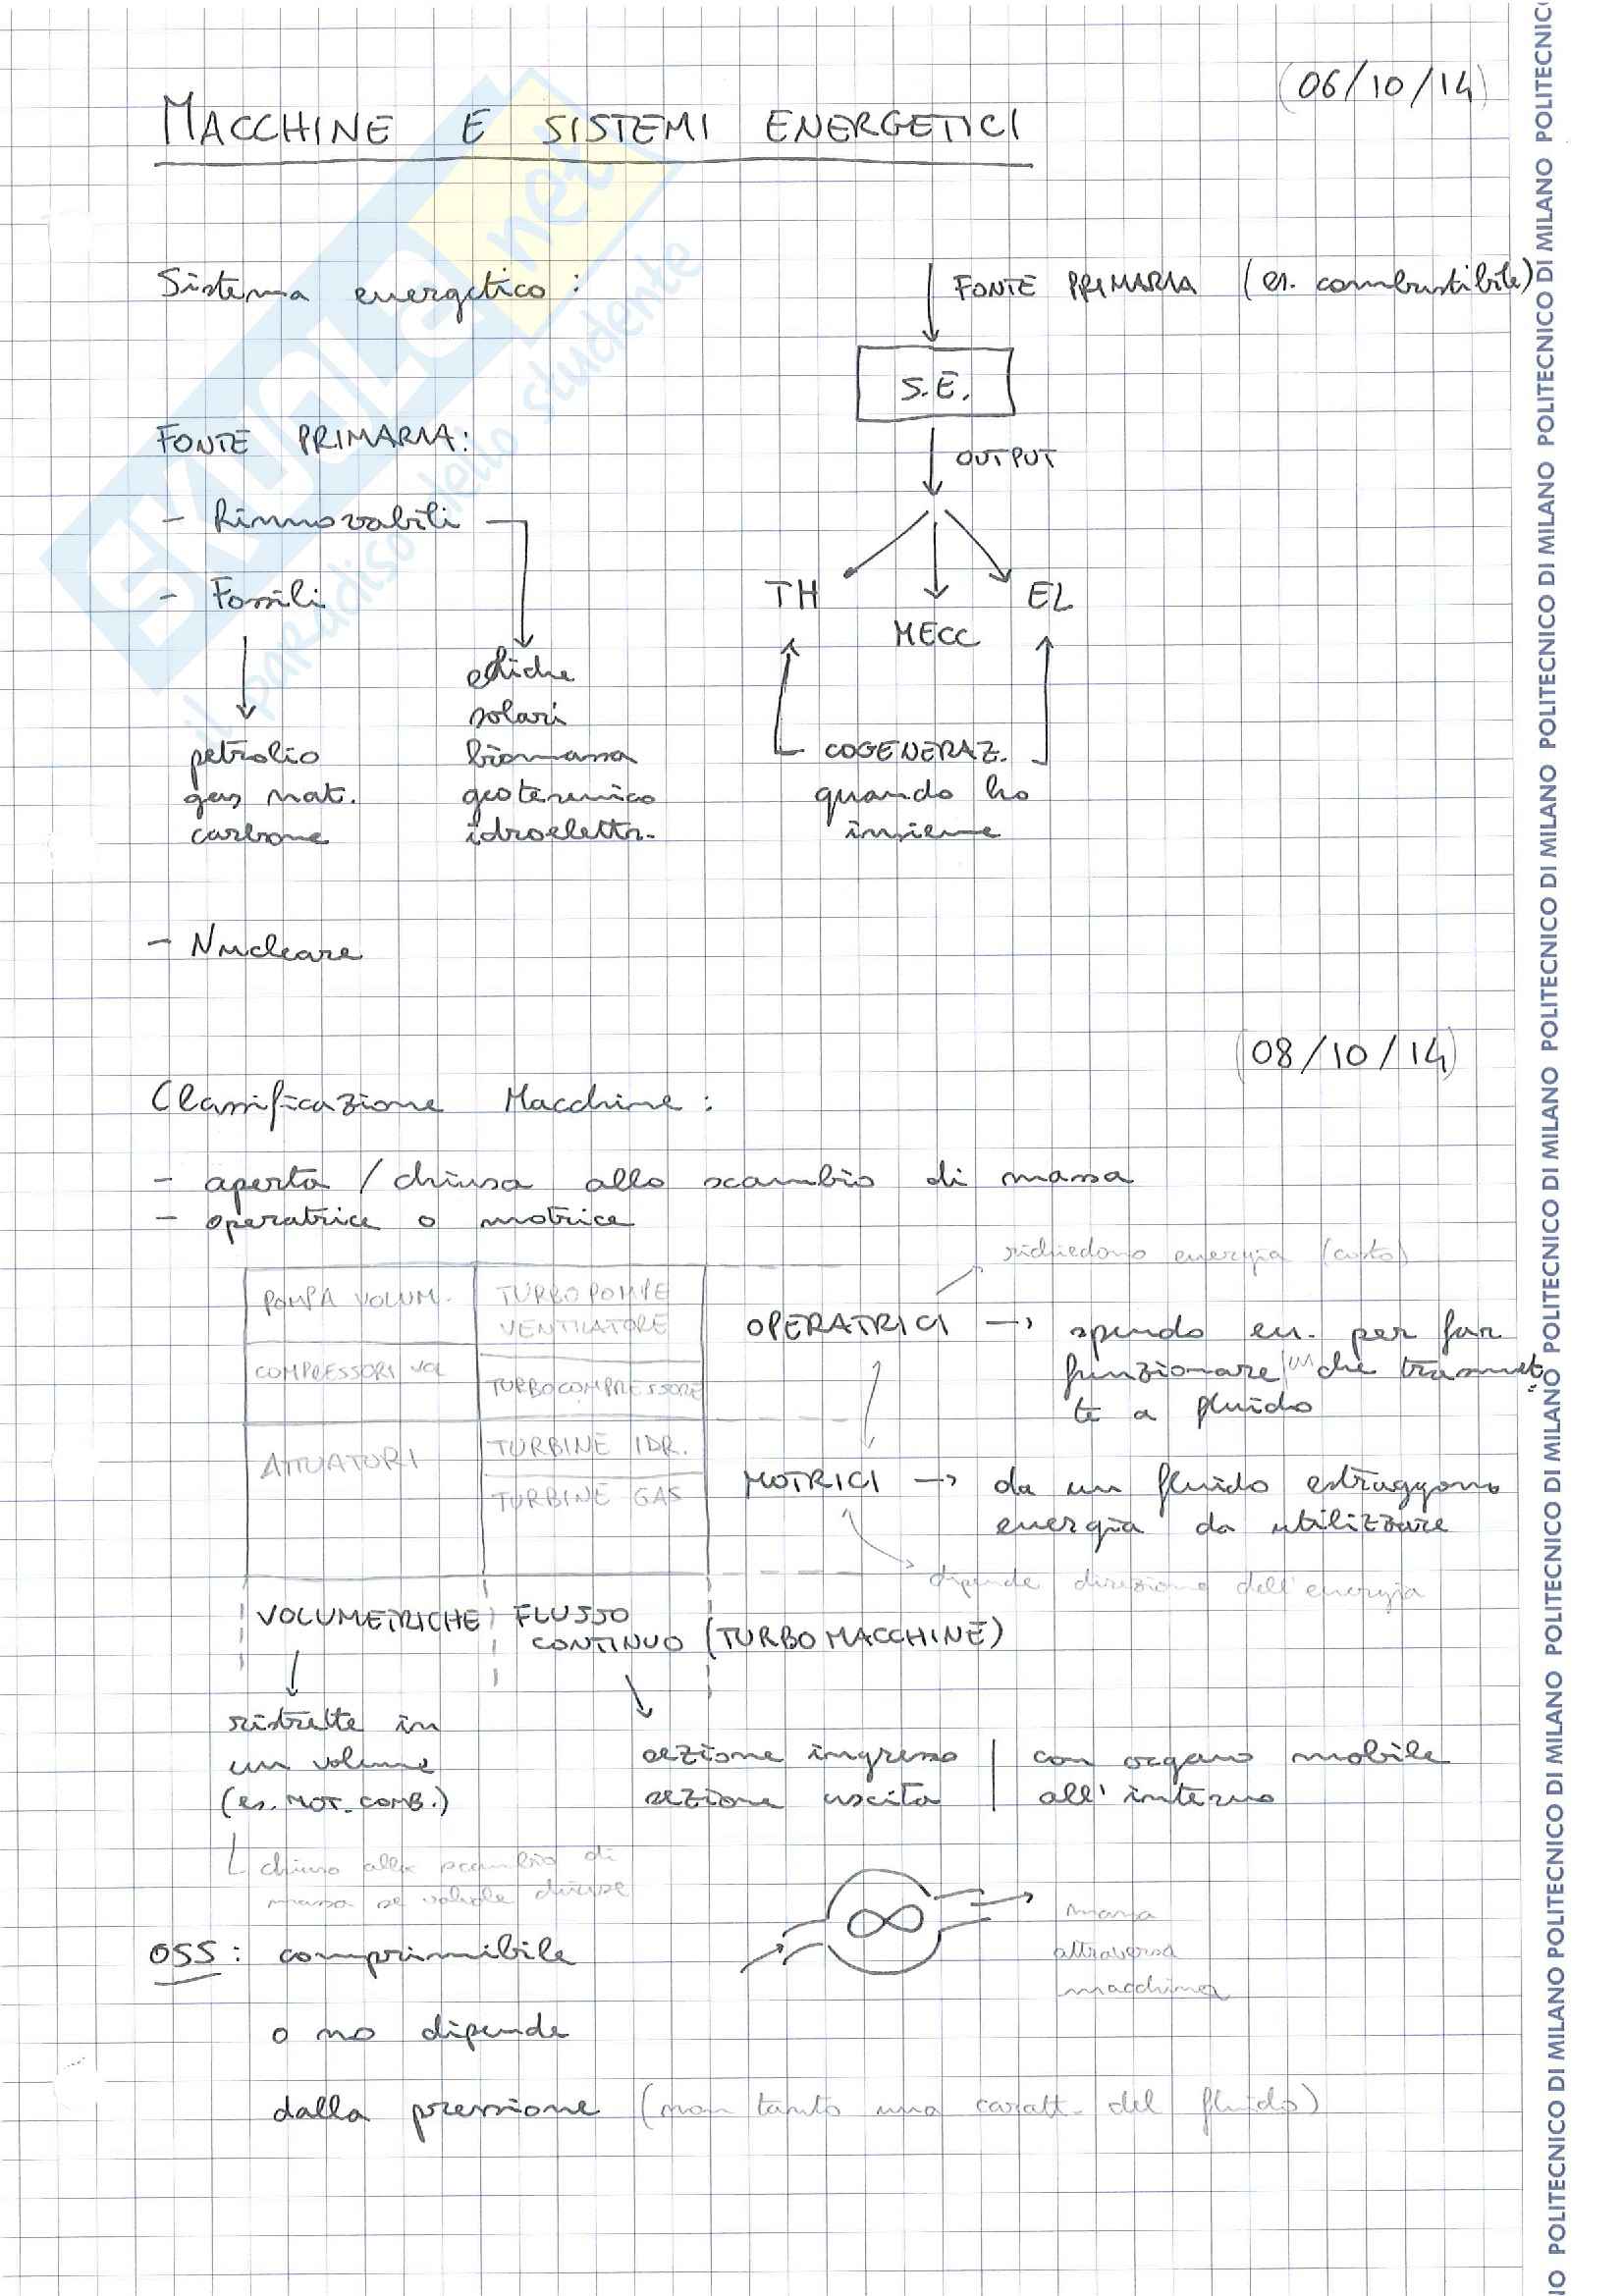 (06/10/14)
MACCHINE E SISTEMI ENERGETICI
Sistema energetico:
FONTE PRIMARIA (es. combustibile)
S.E.
OUTPUT
TH
MECC
EL
COGENERAZ.
quando ho
insieme
FONTE PRIMARIA:
- Rinnovabili
- Fossili
petrolio
gas nat.
carbone
eoliche
solari
biomassa
geotermico
idroelettr.
- Nucleare
(08/10/14)
Classificazione Macchine:
- aperta / chiusa allo scambio di massa
- operatrice o motrice
richiedono energia (costo)
POMPA VOLUM.
TURBOPOMPE
VENTILATORE
COMPRESSORI VOL
TURBOCOMPRESSORE
ATTUATORI
TURBINE IDR.
TURBINE GAS
OPERATRICI → spendo en. per far
funzionare che trasmet
te a fluido
MOTRICI → da un fluido estraggono
energia da utilizzare
dipende direzione dell'energia
VOLUMETRICHE
FLUSSO
CONTINUO (TURBOMACCHINE)
ristrette in
un volume
(es. MOT. COMB.)
chiuso allo scambio di
massa se valvole chiuse
sezione ingresso
sezione uscita
con organo mobile
all'interno
massa
attraversa
macchina
OSS: comprimibile
o no dipende
dalla pressione (non tanto una caratt. del fluido)
SKUOLA.net
il paradiso dello studente
POLITECNICO DI MILANO POLITECNICO DI MILANO POLITECNICO DI MILANO POLITECNICO DI MILANO POLITECNICO DI MILANO POLITECNICO DI MILANO POLITECNICO DI MILANO POLITECNIC